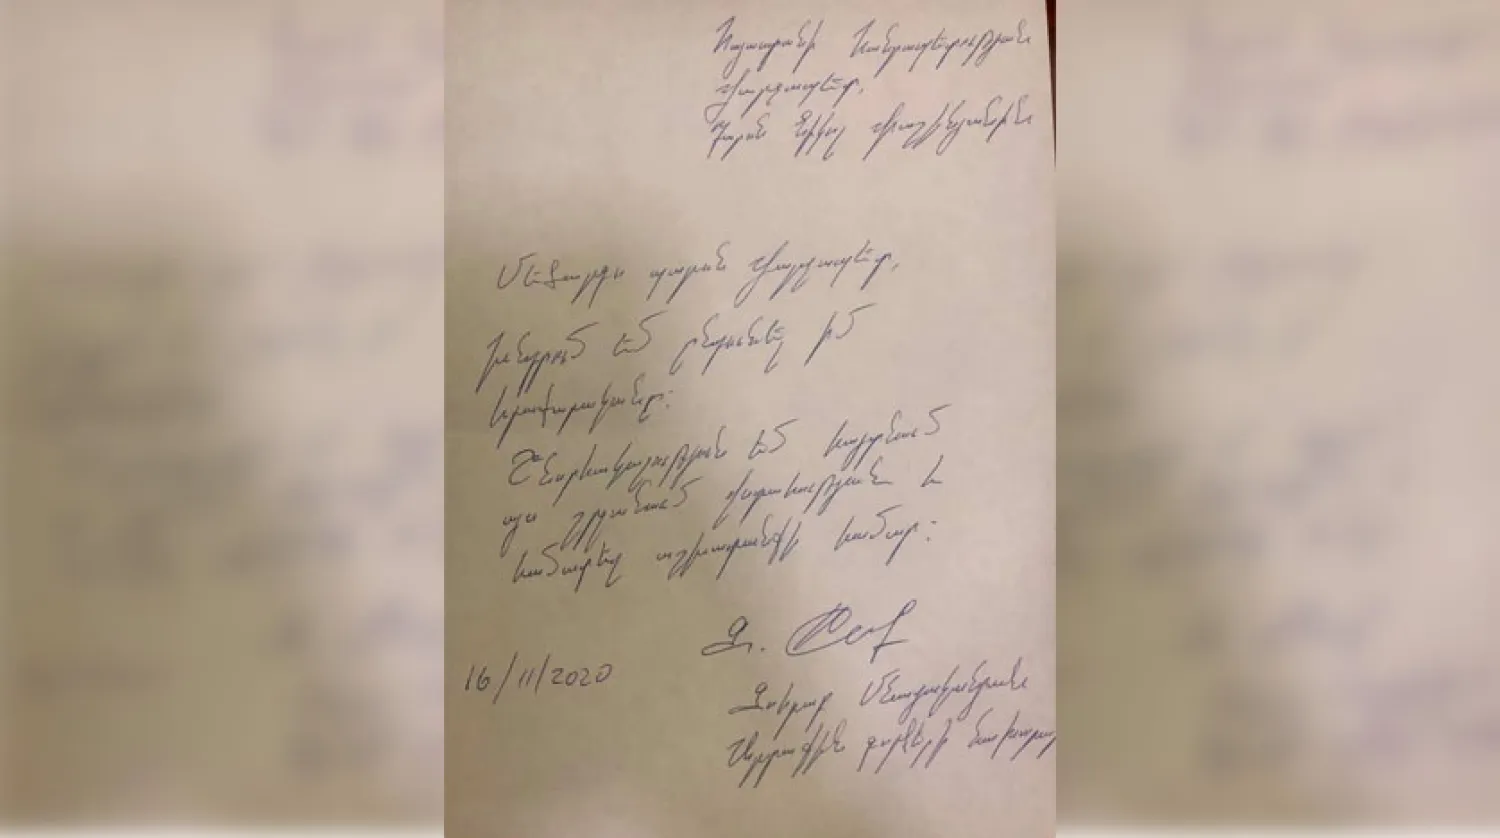 Հայաստանի Հանրապետության
Վարչապետ,
Պարոն Նիկոլ Փաշինյանին
Մեծարգո պարոն Վարչապետ,
Խնդրում եմ ընդունել իմ
հրաժարականը:
Շնորհակալություն եմ հայտնում
այս շրջանում վստահության և
համատեղ աշխատանքի համար:
Զ. Մնաց
16/11/2020
Զոհրաբ Մնացականյան
Արտաքին գործերի նախարար